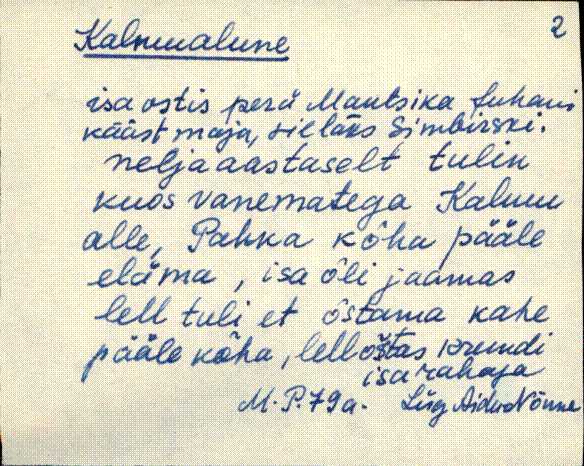 2
Kalmualune
isa ostis perä Mautsika Juhani
kääst maja, sie läks Simbirski.
neljaaastaselt tulin
kuos vanematega Kalmu
alle, Pahka kõha pääle
eläma, isa õli jaamas
lell tuli et õstama kahe
pääle kõha, lell õštas krundi
isa rahaja
M. P. 79 a. Lüg Aidu Nõmme